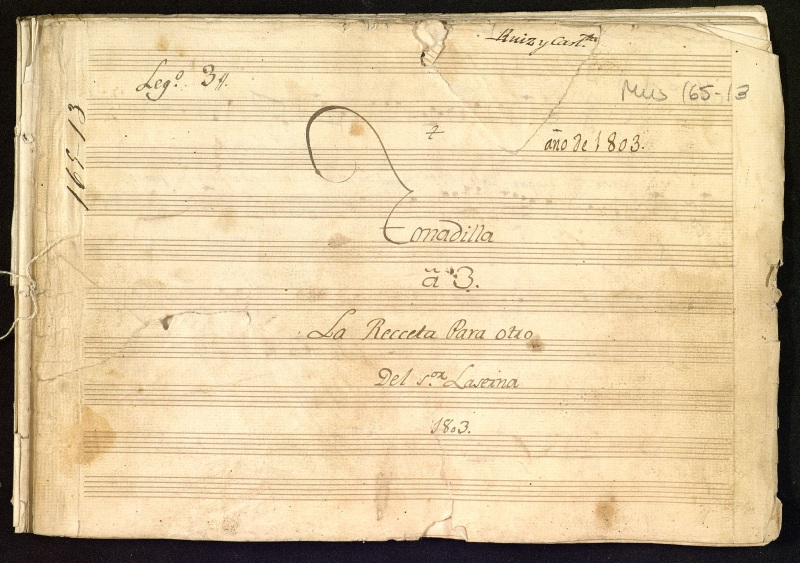 Ruiz y Cast.
Leg.º 3
Mus 165-13
165-13
año de 1803.
Tonadilla
â 3.
La Recceta Para otro
Del s.or Laserna
1803.